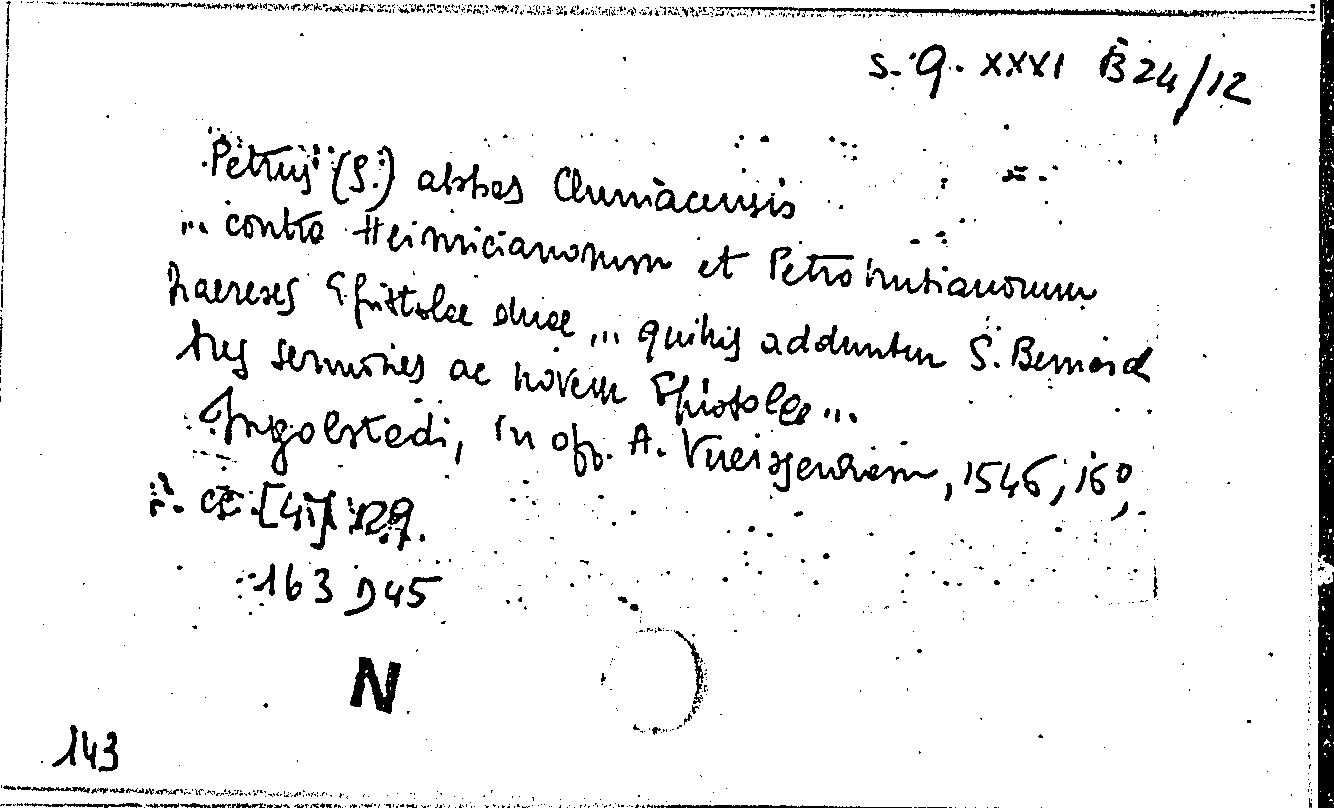 S. Q. XXXI B 24/12
Petrus (S.) abbas Cluniacensis
... contra Heinricianorum et Petrobrutianorum
haereses Epistolae duae ... quibis adduntur S. Bernard
tres sermones ac novem Epistolae ...
Ingolstadi, in off. A. Vueissenhorn, 1546, 16°,
129.
163 D 45
N
143